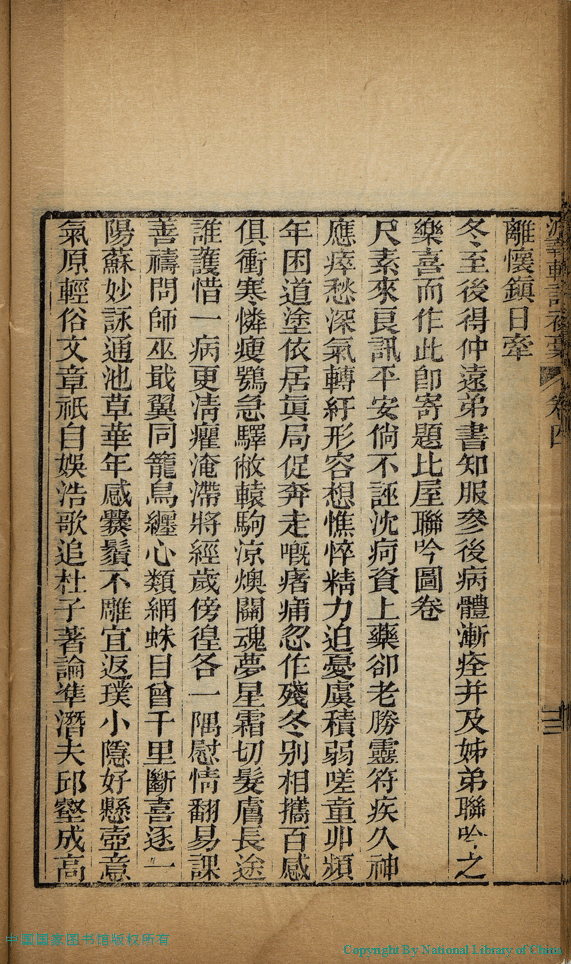 卷四
離懷鎮日牽
冬至後得仲遠弟書知服參後病體漸痊并及姊弟聯吟之
樂喜而作此卽寄題比屋聯吟圖卷
尺素來良訊平安倘不誣沈疴資上藥卻老勝靈符疾久神
應瘁愁深氣轉紆形容想憔悴精力迫憂虞積弱嗟童丱頻
年困道塗依居眞局促奔走嘅瘏痡忽作殘冬別相攜百感
俱衝寒憐瘦鶚急驛敝轅駒涼燠關魂夢星霜切髮膚長途
誰護惜一病更清癯淹滯將經歲傍徨各一隅慰情翻易課
善禱問師巫戢翼同籠鳥纏心類網蛛目曾千里斷喜逐一
陽蘇妙詠通池草華年感爨鬚不雕宜返璞小隱好懸壺意
氣原輕俗文章祇自娛浩歌追杜子著論準潛夫邱壑成高
中國國家图书馆版权所有
Copyright By National Library of China